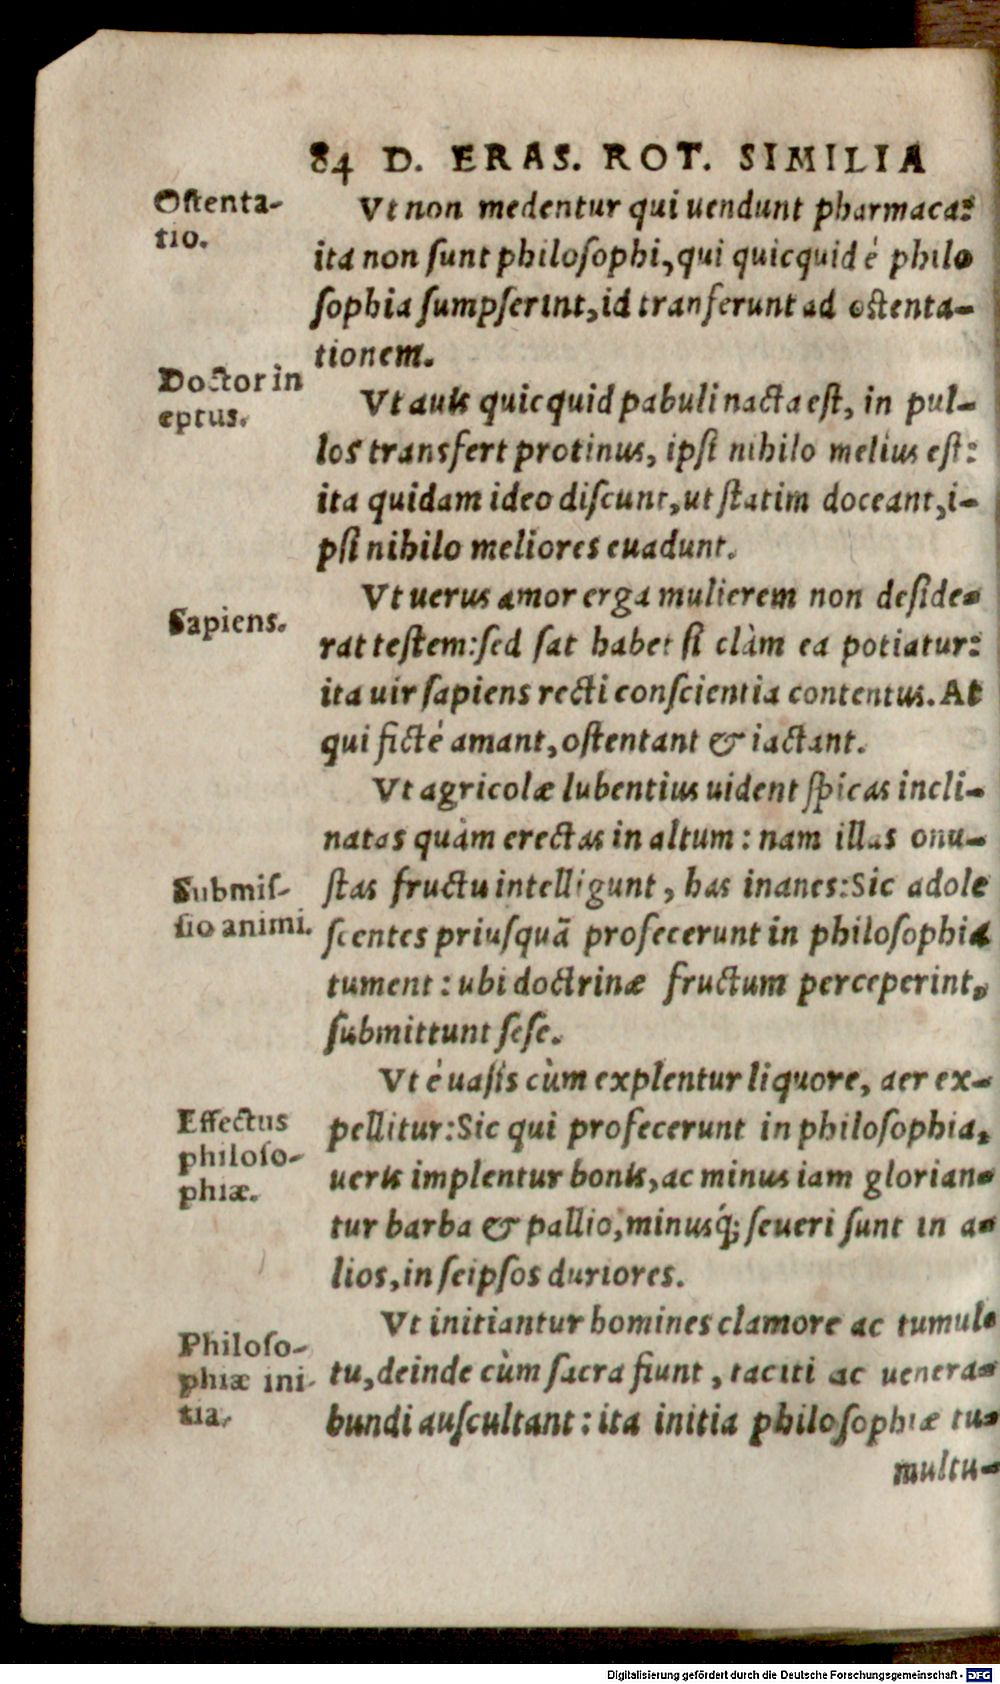 84 D. ERAS. ROT. SIMILIA
Ostenta-
tio.
Vt non medentur qui uendunt pharmaca:
ita non sunt philosophi, qui quicquid é philo
sophia sumpserint, id tranferunt ad ostenta-
tionem.
Doctor in
eptus.
Vt auis quicquid pabuli nacta est, in pul-
los transfert protinus, ipsi nihilo melius est:
ita quidam ideo discunt, ut statim doceant, i-
psi nihilo meliores euadunt.
Sapiens.
Vt uerus amor erga mulierem non deside-
rat testem: sed sat habet si clàm ea potiatur:
ita uir sapiens recti conscientia contentus. At
qui ficté amant, ostentant & iactant.
Vt agricolæ lubentius uident spicas incli-
natas quàm erectas in altum: nam illas onu-
Submis-
sio animi.
stas fructu intelligunt, has inanes: Sic adole
scentes priusquã profecerunt in philosophia
tument: ubi doctrinæ fructum perceperint,
submittunt sese.
Vt é uasis cùm explentur liquore, aer ex-
Effectus
philoso-
phiæ.
pellitur: Sic qui profecerunt in philosophia,
ueris implentur bonis, ac minus iam glorian-
tur barba & pallio, minusq́; seueri sunt in a-
lios, in seipsos duriores.
Vt initiantur homines clamore ac tumul-
Philoso-
phiæ ini-
tia.
tu, deinde cùm sacra fiunt, taciti ac uenera-
bundi auscultant: ita initia philosophiæ tu-
multu-
Digitalisierung gefördert durch die Deutsche Forschungsgemeinschaft - DFG